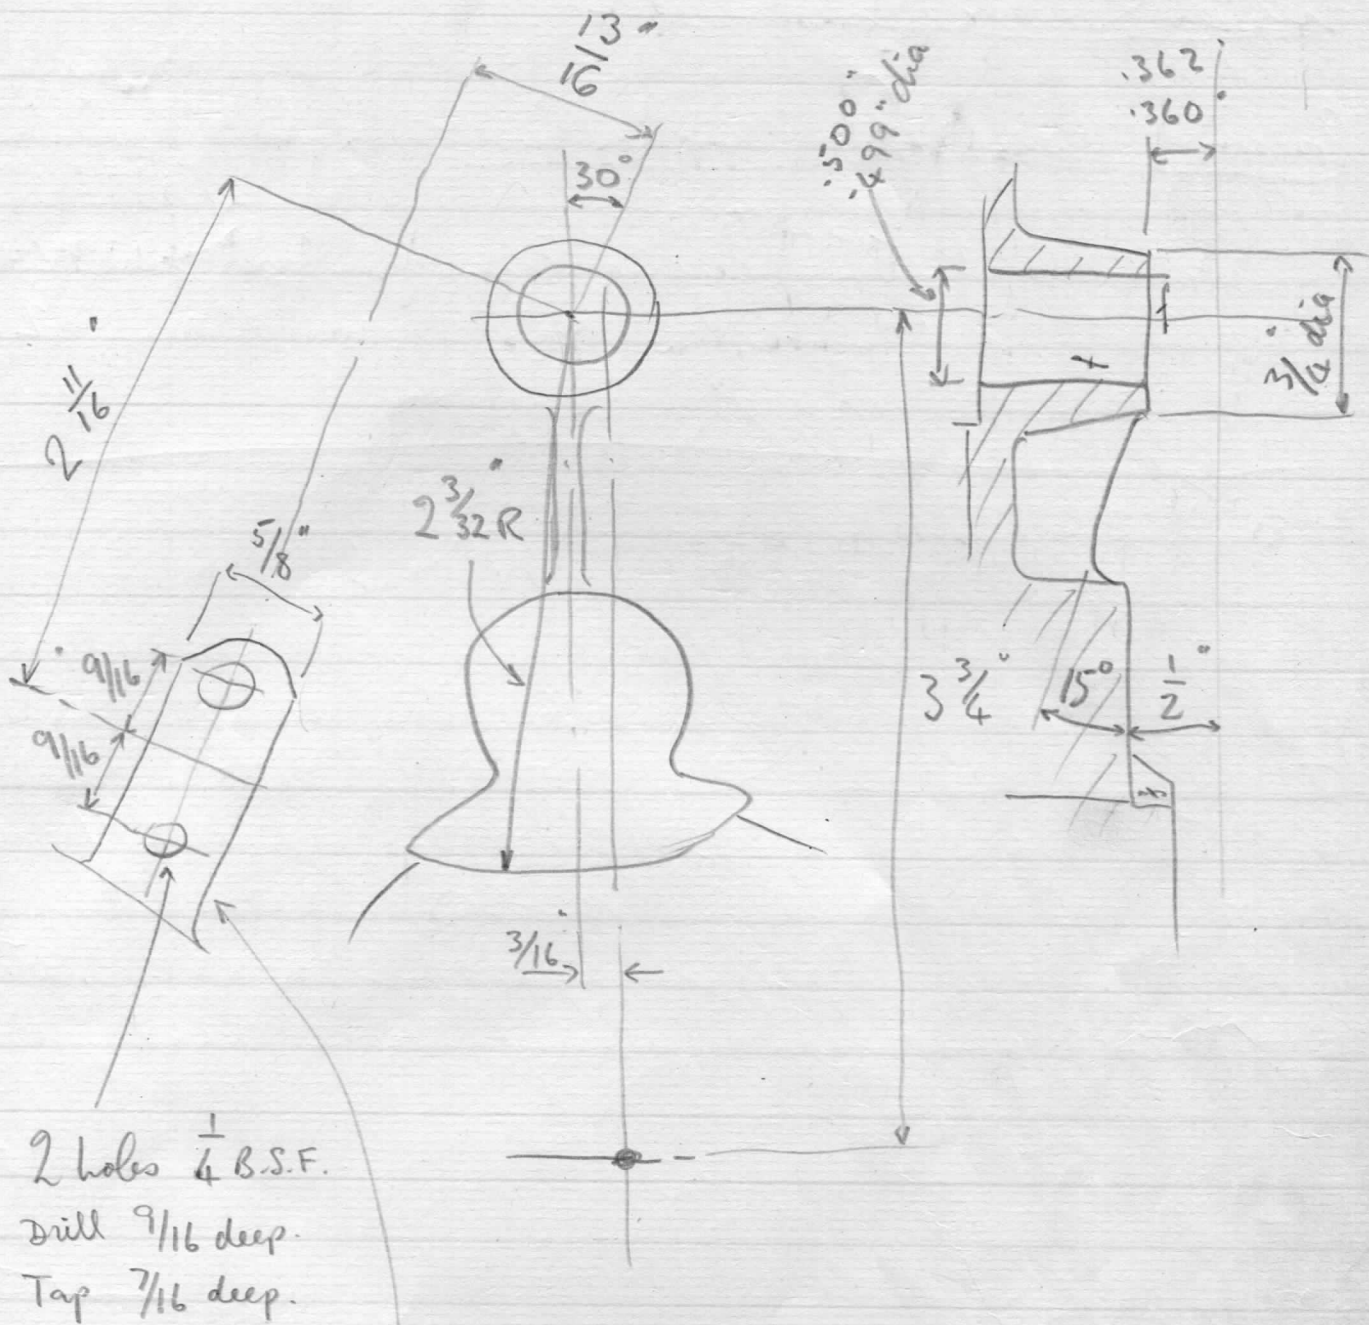 13/16"
30°
.500"
.499" dia
.362
.360"
3/4" dia
2 11/16"
2 3/32" R
5/8"
9/16"
9/16
3 3/4"
15°
1/2"
3/16"
2 holes 1/4 B.S.F.
Drill 9/16 deep.
Tap 7/16 deep.